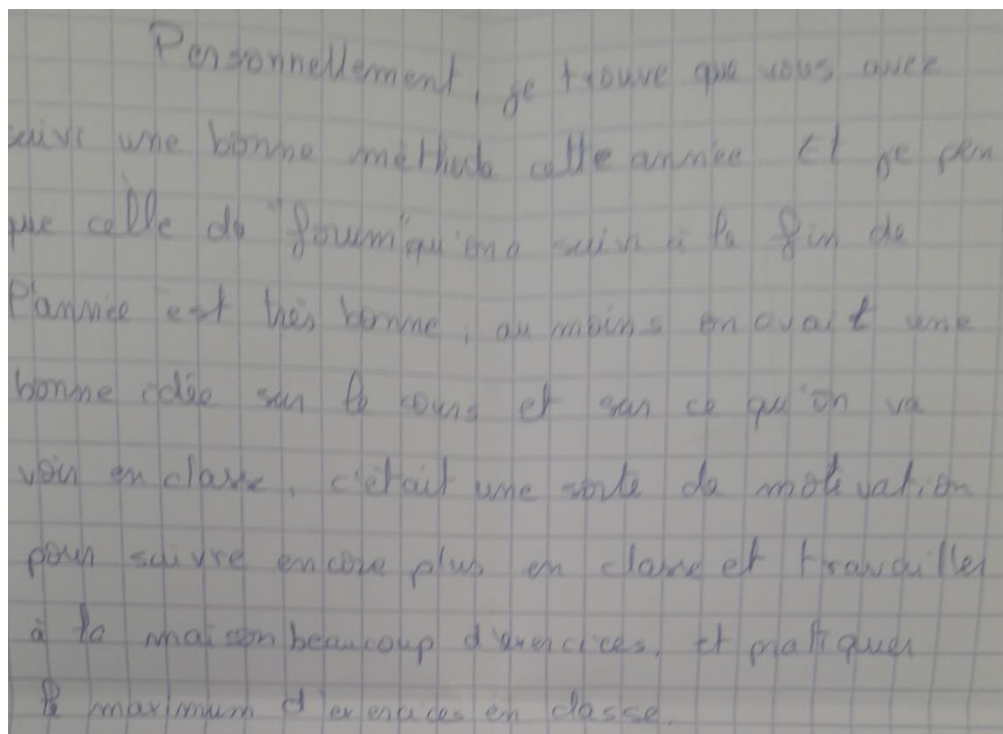 Personnellement, je trouve que vous avez
suivi une bonne méthode cette année. Et je pen
que celle de "forum" qu'on a suivi à la fin de
l'année est très bonne, au moins on avait une
bonne idée sur le cours et sur ce qu'on va
voir en classe, c'était une sorte de motivation
pour suivre encore plus en classe et travailler
à la maison beaucoup d'exercices, et pratiquer
le maximum d'exercices en classe.